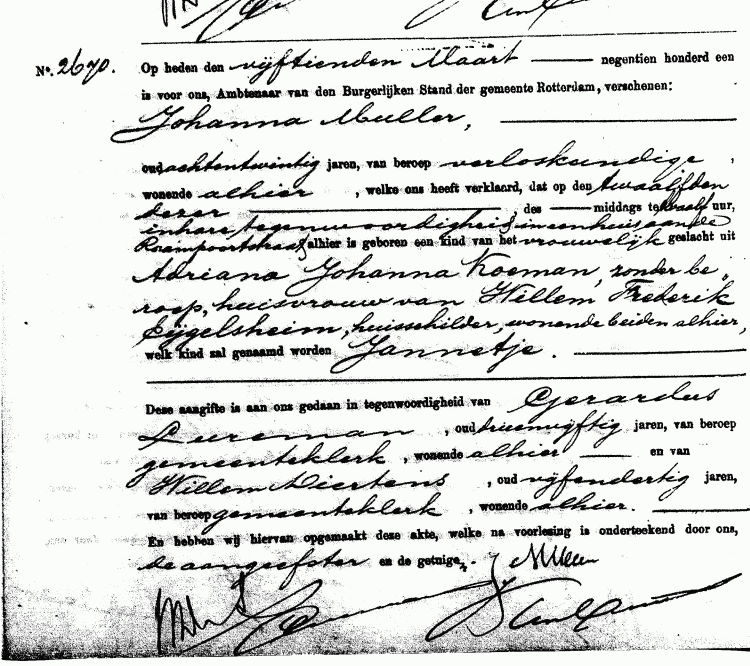 No. 2670. Op heden den vijftienden Maart negentien honderd een
is voor ons, Ambtenaar van den Burgerlijken Stand der gemeente Rotterdam, verschenen:
Johanna Muller,
oud achtentwintig jaren, van beroep verloskundige,
wonende alhier, welke ons heeft verklaard, dat op den twaalfden
dezer des middags te twaalf uur,
in hare tegenwoordigheid in een huis aan de
alhier is geboren een kind van het vrouwelijk geslacht uit
Adriana Johanna Koeman, zonder be„
roep, huisvrouw van Willem Frederik
Eijgelsheim, huisschilder, wonende beiden alhier,
welk kind zal genaamd worden Jannetje.
Deze aangifte is aan ons gedaan in tegenwoordigheid van Gerardus
, oud drieenvijftig jaren, van beroep
gemeenteklerk, wonende alhier en van
Willem Mertens, oud vijfendertig jaren,
van beroep gemeenteklerk, wonende alhier.
En hebben wij hiervan opgemaakt deze akte, welke na voorlezing is onderteekend door ons,
de aangeefster en de getuigen.